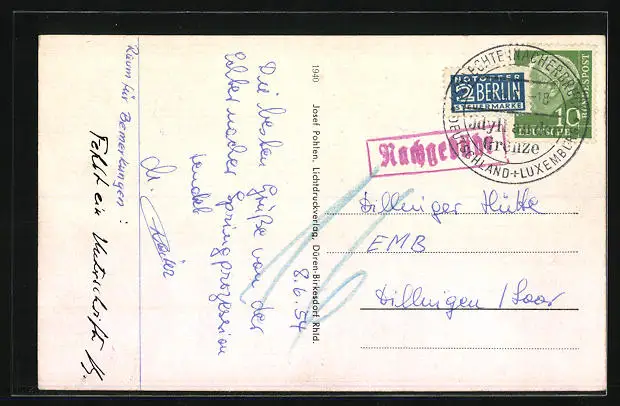 Raum für Bemerkungen:
Fehlt ein Unterschrift
Die besten Grüße von der
Echternacher Springprozession
sendet
8.6.54
1940 Josef Pohlen, Lichtdruckverlag, Düren-Birkesdorf Rhld.
NOTOPFER
2 BERLIN
STEUERMARKE
DEUTSCHE BUNDESPOST
10
ECHTERNACHERBRÜCK
Idyll a. d.
Grenze
DEUTSCHLAND + LUXEMBURG
Nachgebühr
Dillinger Hütte
EMB
Dillingen / Saar